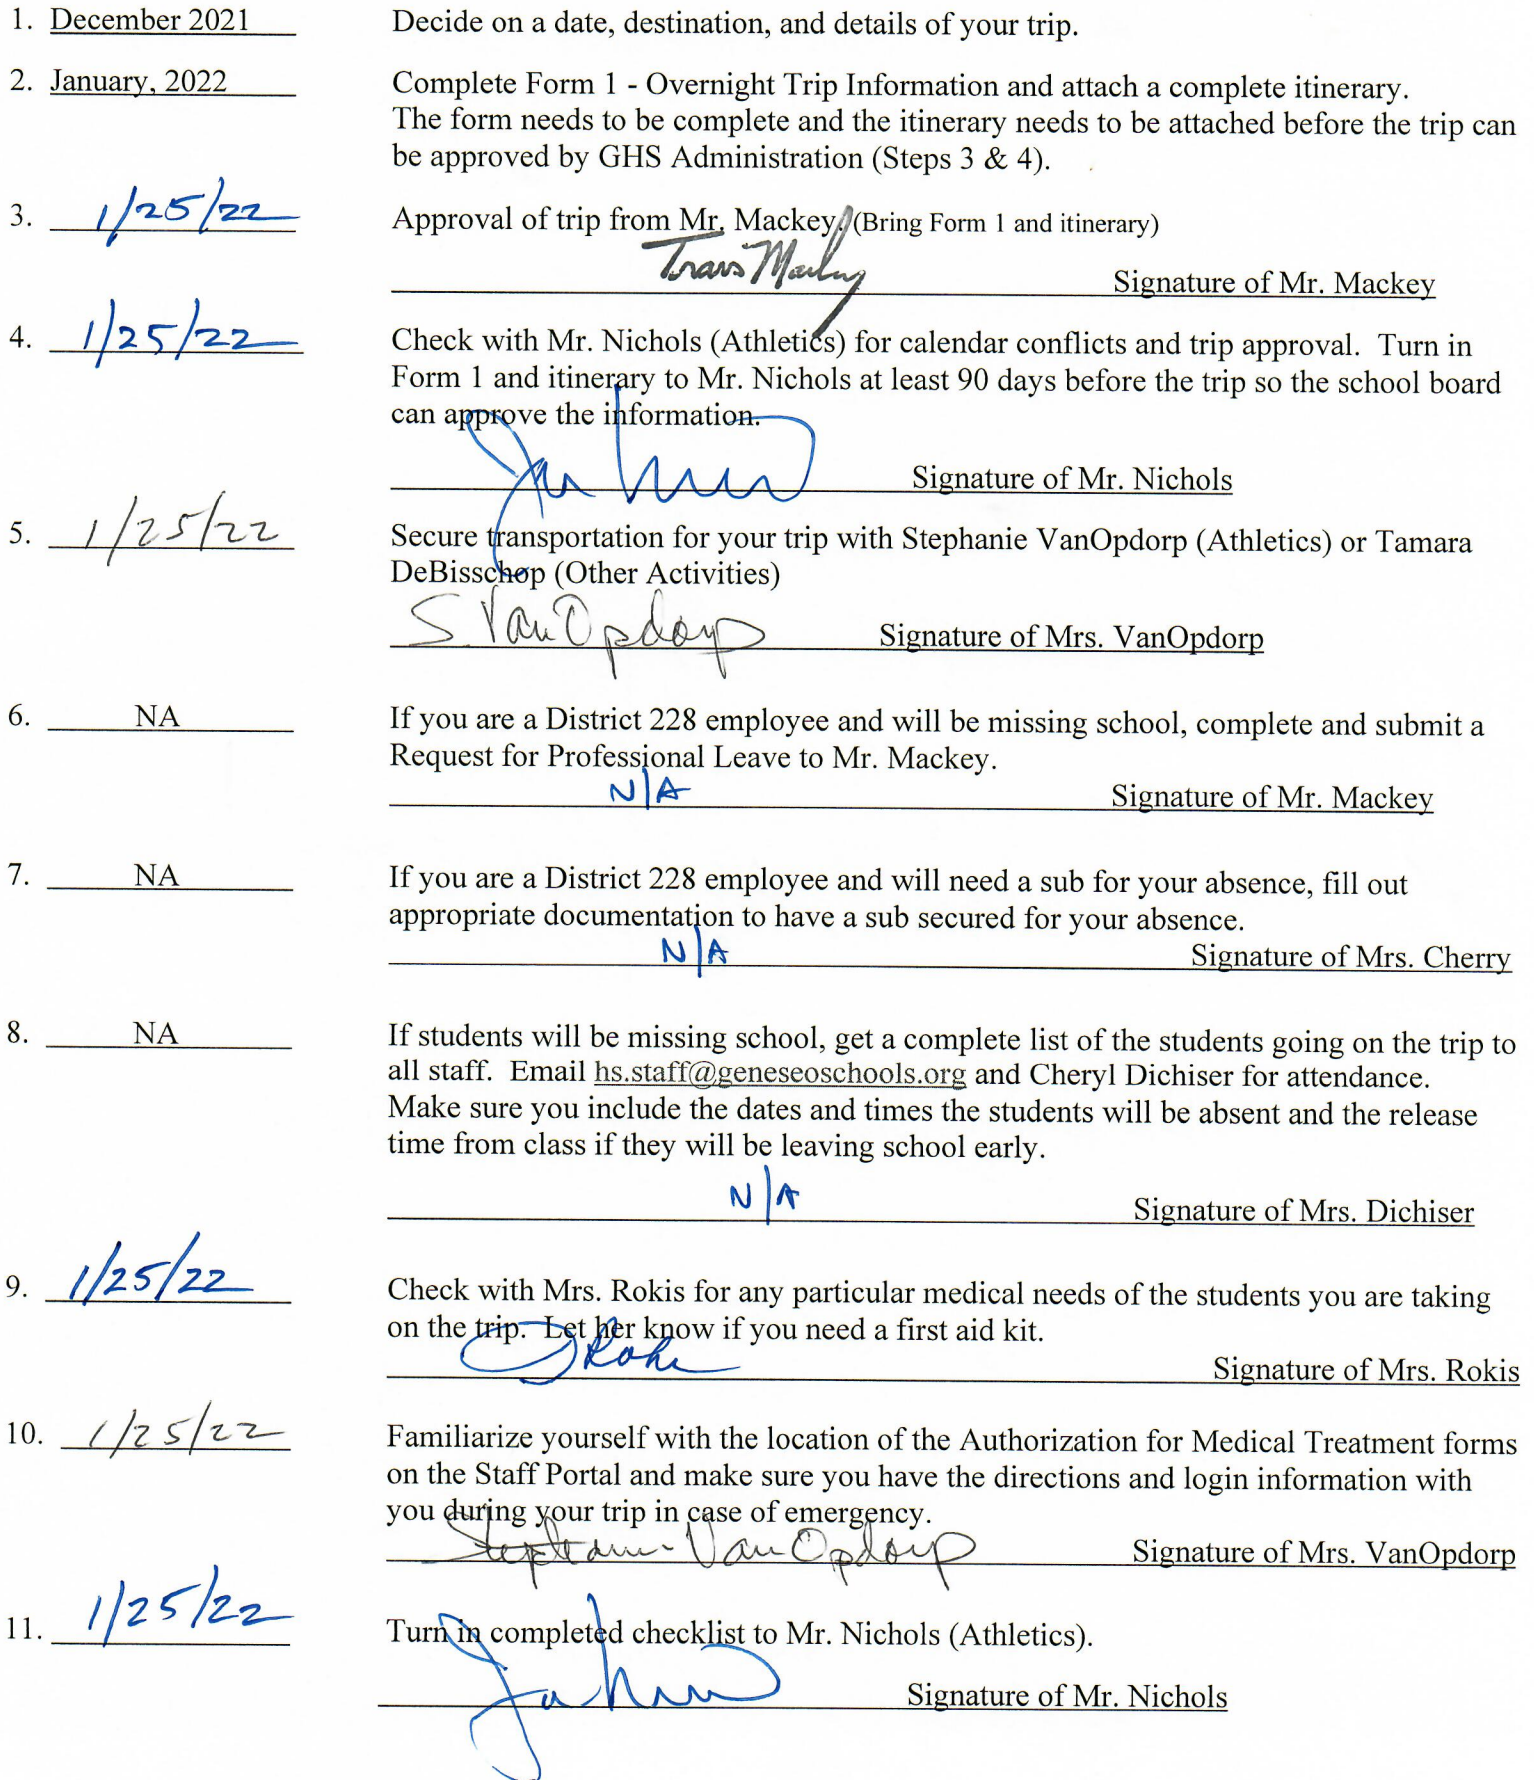 1. December 2021 Decide on a date, destination, and details of your trip.
2. January, 2022 Complete Form 1 - Overnight Trip Information and attach a complete itinerary.
The form needs to be complete and the itinerary needs to be attached before the trip can
be approved by GHS Administration (Steps 3 & 4).
3. 1/25/22 Approval of trip from Mr. Mackey. (Bring Form 1 and itinerary)
Travis Mackey Signature of Mr. Mackey
4. 1/25/22 Check with Mr. Nichols (Athletics) for calendar conflicts and trip approval. Turn in
Form 1 and itinerary to Mr. Nichols at least 90 days before the trip so the school board
can approve the information.
Signature of Mr. Nichols
5. 1/25/22 Secure transportation for your trip with Stephanie VanOpdorp (Athletics) or Tamara
DeBisschop (Other Activities)
S. VanOpdorp Signature of Mrs. VanOpdorp
6. NA If you are a District 228 employee and will be missing school, complete and submit a
Request for Professional Leave to Mr. Mackey.
N/A Signature of Mr. Mackey
7. NA If you are a District 228 employee and will need a sub for your absence, fill out
appropriate documentation to have a sub secured for your absence.
N/A Signature of Mrs. Cherry
8. NA If students will be missing school, get a complete list of the students going on the trip to
all staff. Email hs.staff@geneseoschools.org and Cheryl Dichiser for attendance.
Make sure you include the dates and times the students will be absent and the release
time from class if they will be leaving school early.
N/A Signature of Mrs. Dichiser
9. 1/25/22 Check with Mrs. Rokis for any particular medical needs of the students you are taking
on the trip. Let her know if you need a first aid kit.
Signature of Mrs. Rokis
10. 1/25/22 Familiarize yourself with the location of the Authorization for Medical Treatment forms
on the Staff Portal and make sure you have the directions and login information with
you during your trip in case of emergency.
Stephanie VanOpdorp Signature of Mrs. VanOpdorp
11. 1/25/22 Turn in completed checklist to Mr. Nichols (Athletics).
Signature of Mr. Nichols